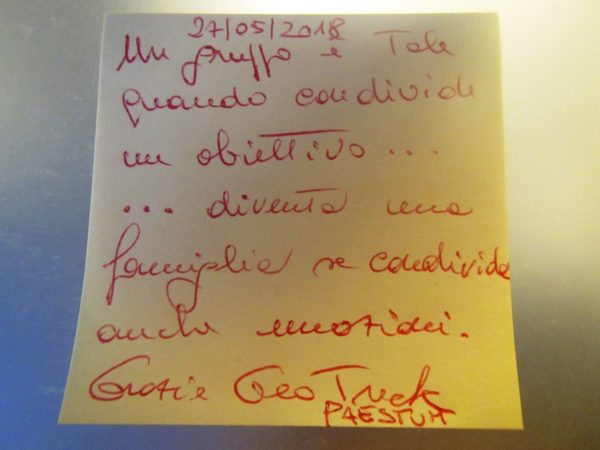 27/05/2018
Un gruppo è Tale
quando condivide
un obiettivo ...
... diventa una
famiglia se condivide
anche emozioni.
Grazie Geo Trek
PAESTUM